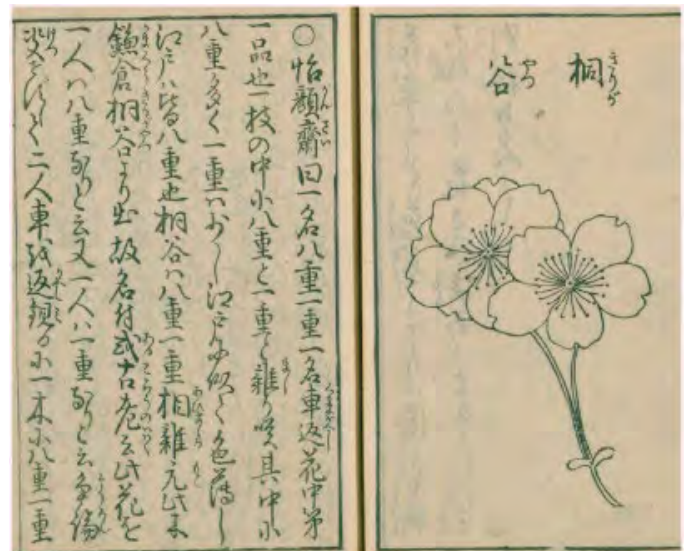 桐谷
○怡顔齋曰一名八重一重一名車返花中第
一品也一枝の中に八重と一重と雜り咲其中に
八重多く一重ハ少し江戸に似て色薄し
江戸ハ皆八重也桐谷ハ八重一重相雜元此木
鎌倉桐谷より出故名付或古老云此花を
一人ハ八重なりと云又一人ハ一重なりと云争論
二人車を返に一木に八重一重